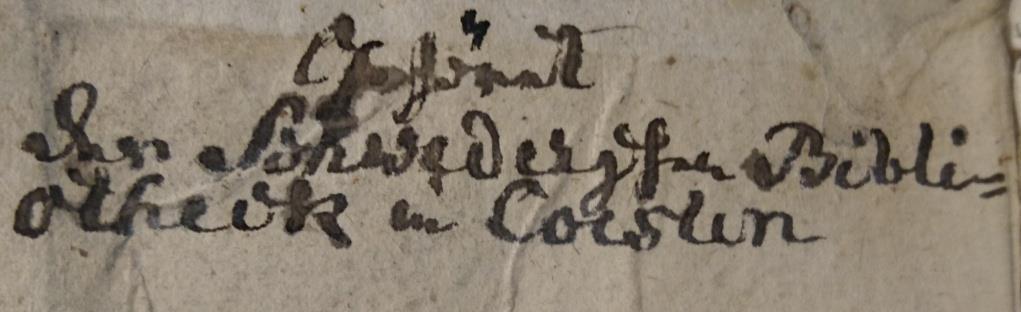 Gehöret
der Schwederschen Bibli=
otheck in Coeslin